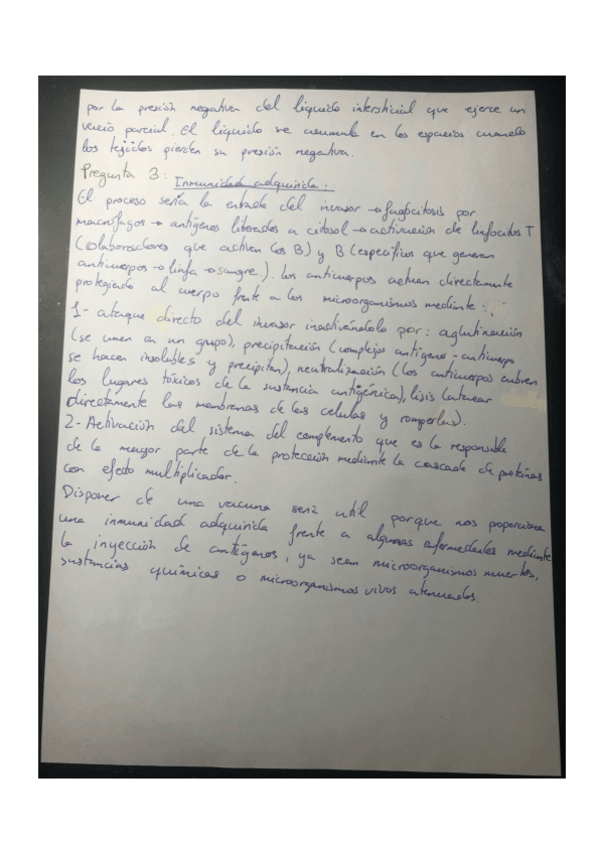 por la presión negativa del líquido intersticial que ejerce un
vacío parcial. El líquido se acumula en los espacios cuando
los tejidos pierden su presión negativa.
Pregunta 3: Inmunidad adquirida:
El proceso sería la entrada del invasor → fagocitosis por
macrófagos → antígenos liberados a citosol → activación de linfocitos T
(colaboradores que activan los B) y B (específicos que generan
anticuerpos → linfa → sangre). Los anticuerpos actúan directamente
protegiendo al cuerpo frente a los microorganismos mediante:
1- ataque directo del invasor inactivándolo por: aglutinación
(se unen en un grupo), precipitación (complejos antígeno-anticuerpo
se hacen insolubles y precipitan), neutralización (los anticuerpos cubren
los lugares tóxicos de la sustancia antigénica), lisis (atacar
directamente las membranas de las células y romperlas).
2- Activación del sistema del complemento que es la responsable
de la mayor parte de la protección mediante la cascada de proteínas
con efecto multiplicador.
Disponer de una vacuna sería util porque nos poporciona
una inmunidad adquirida frente a algunas enfermedades mediante
la inyección de antígenos, ya sean microorganismos muertos,
sustancias químicas o microorganismos vivos atenuados.